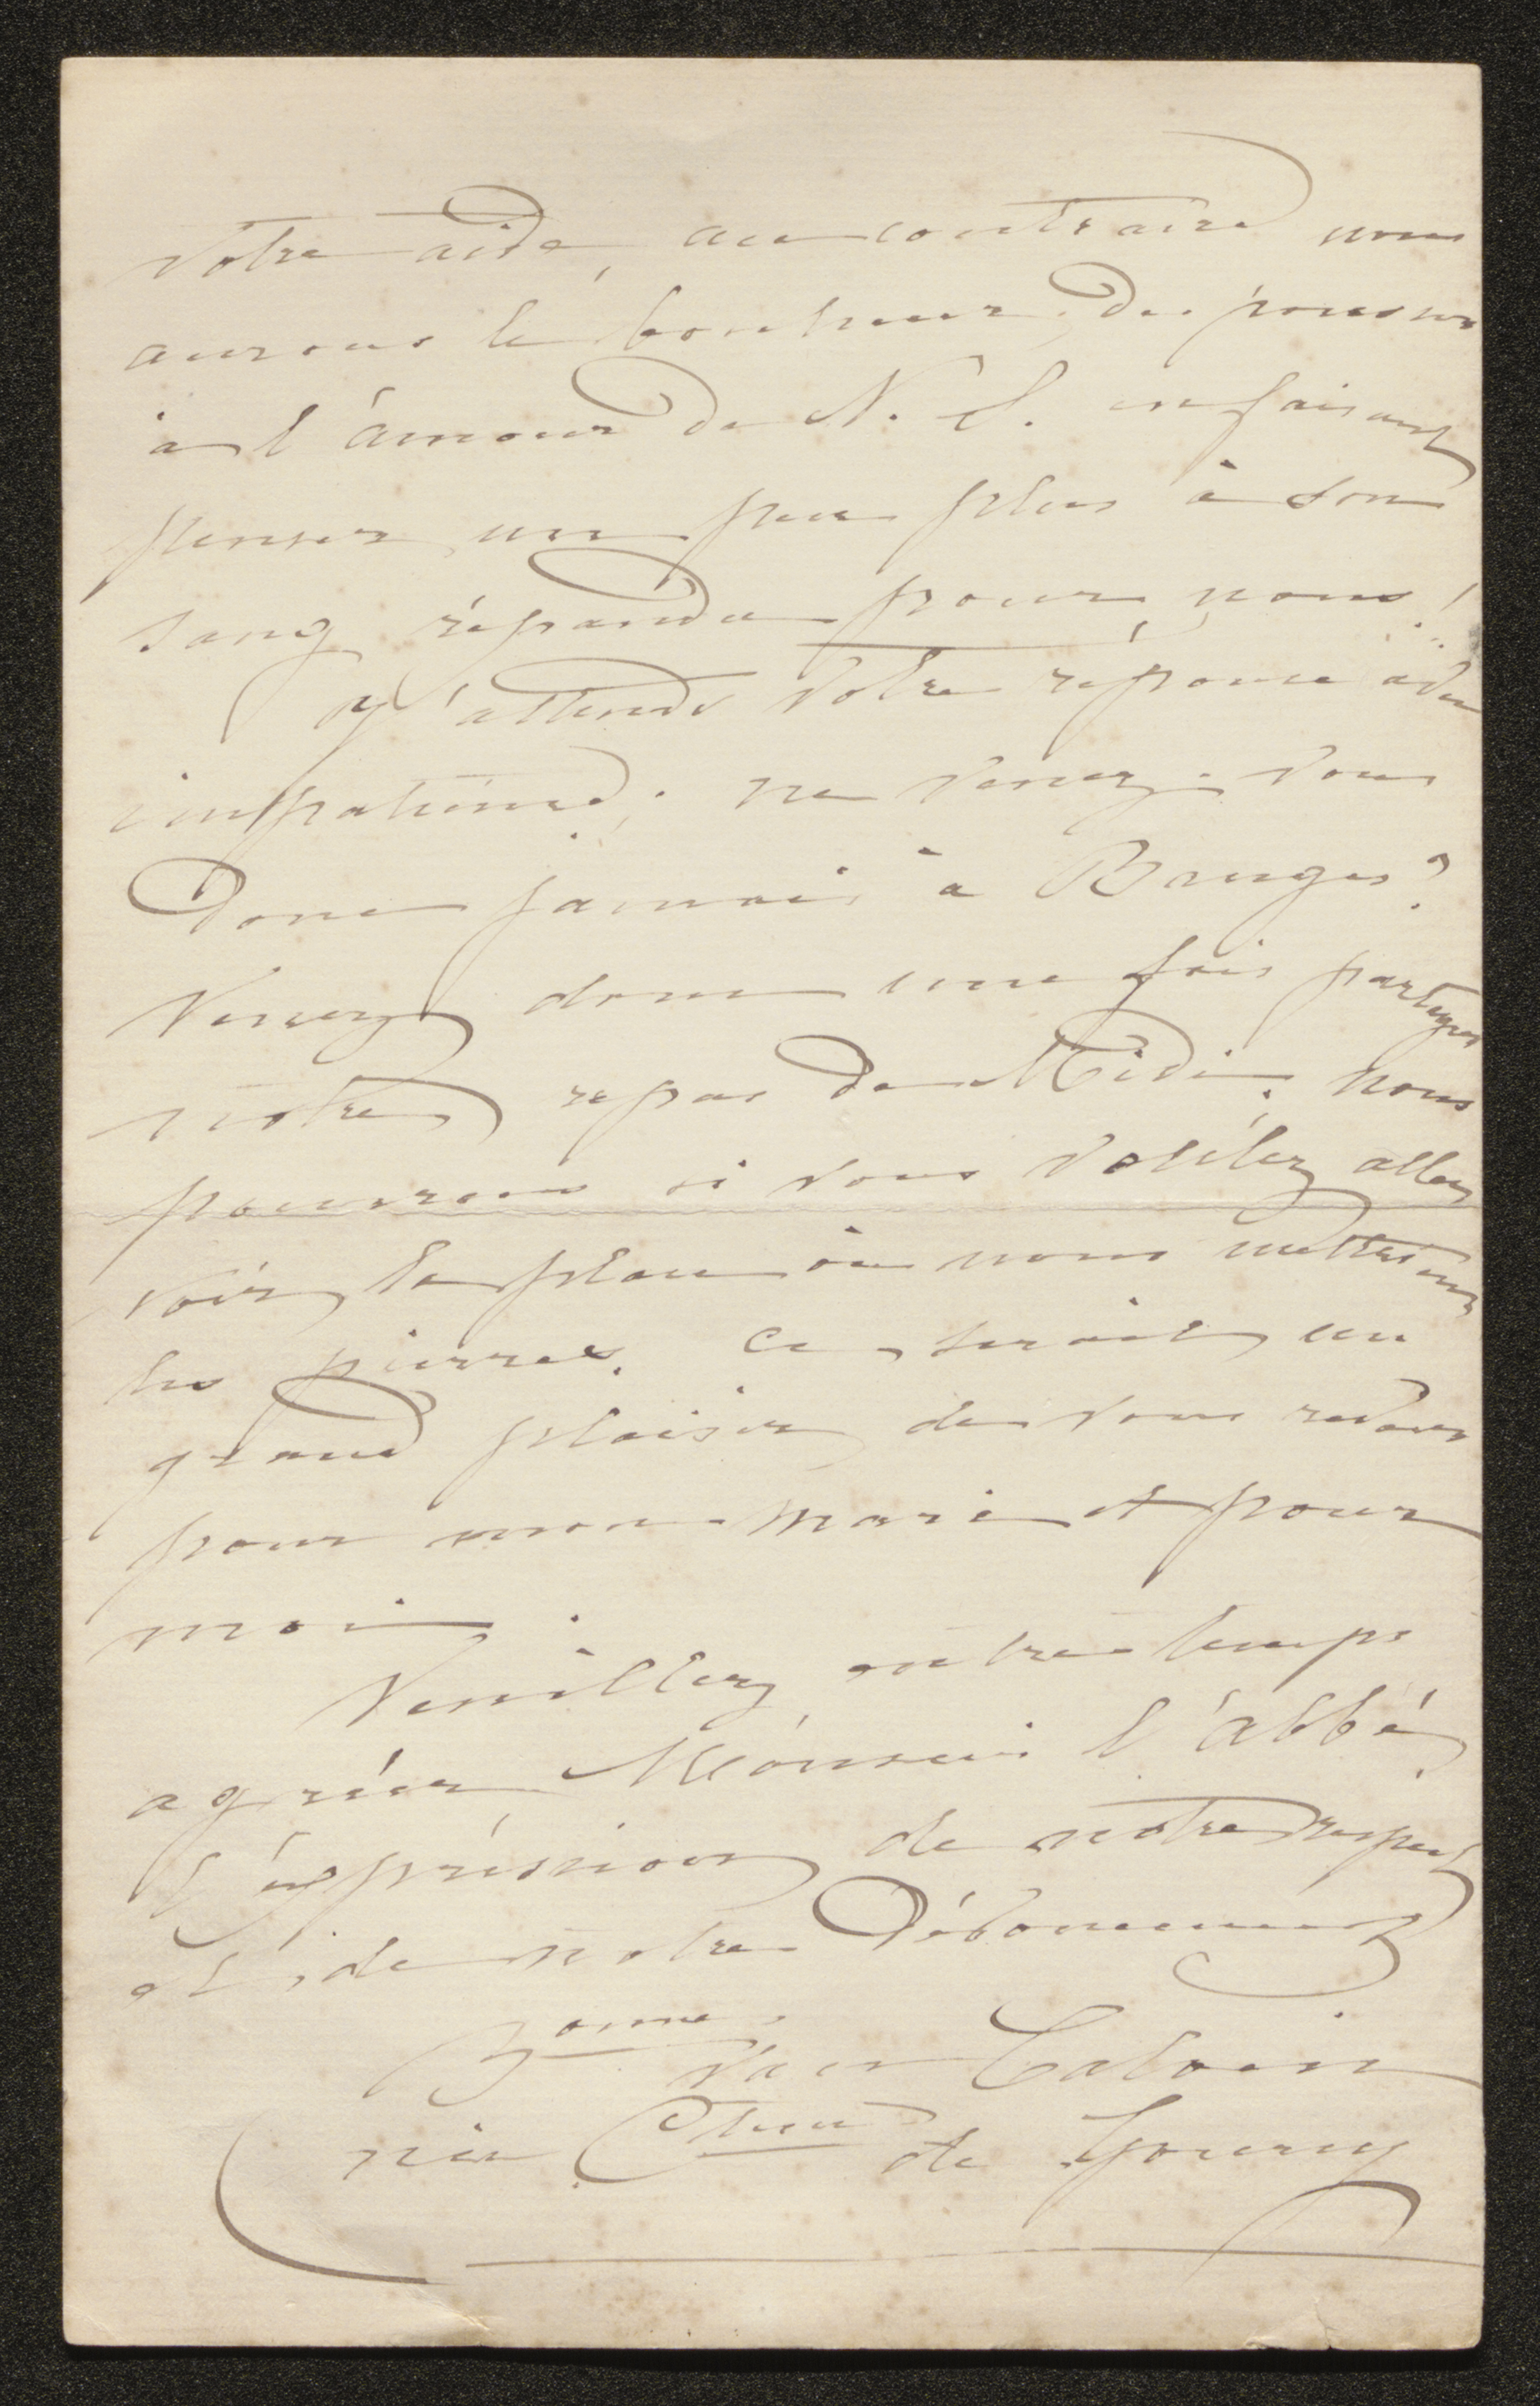 votre aide, au contraire nous
aurons le bonheur de pousser
à l'amour de N. S. en faisant
penser un peu plus à son
sang répandu pour nous!
J'attends votre réponse avec
impatience; ne venez-vous
donc jamais à Bruges?
Venez donc une fois partager
notre repas de Midi; nous
pourrons si vous voulez aller
voir la place où nous mettrons
les pierres. ce serait un
grand plaisir de vous revoir
pour mon mari et pour
moi.
Veuillez entretemps
agréer Monsieur l'abbé,
l'expression de notre respect
et de notre Dévouement
Bonne van Caloen
née Ctesse de Gourcy